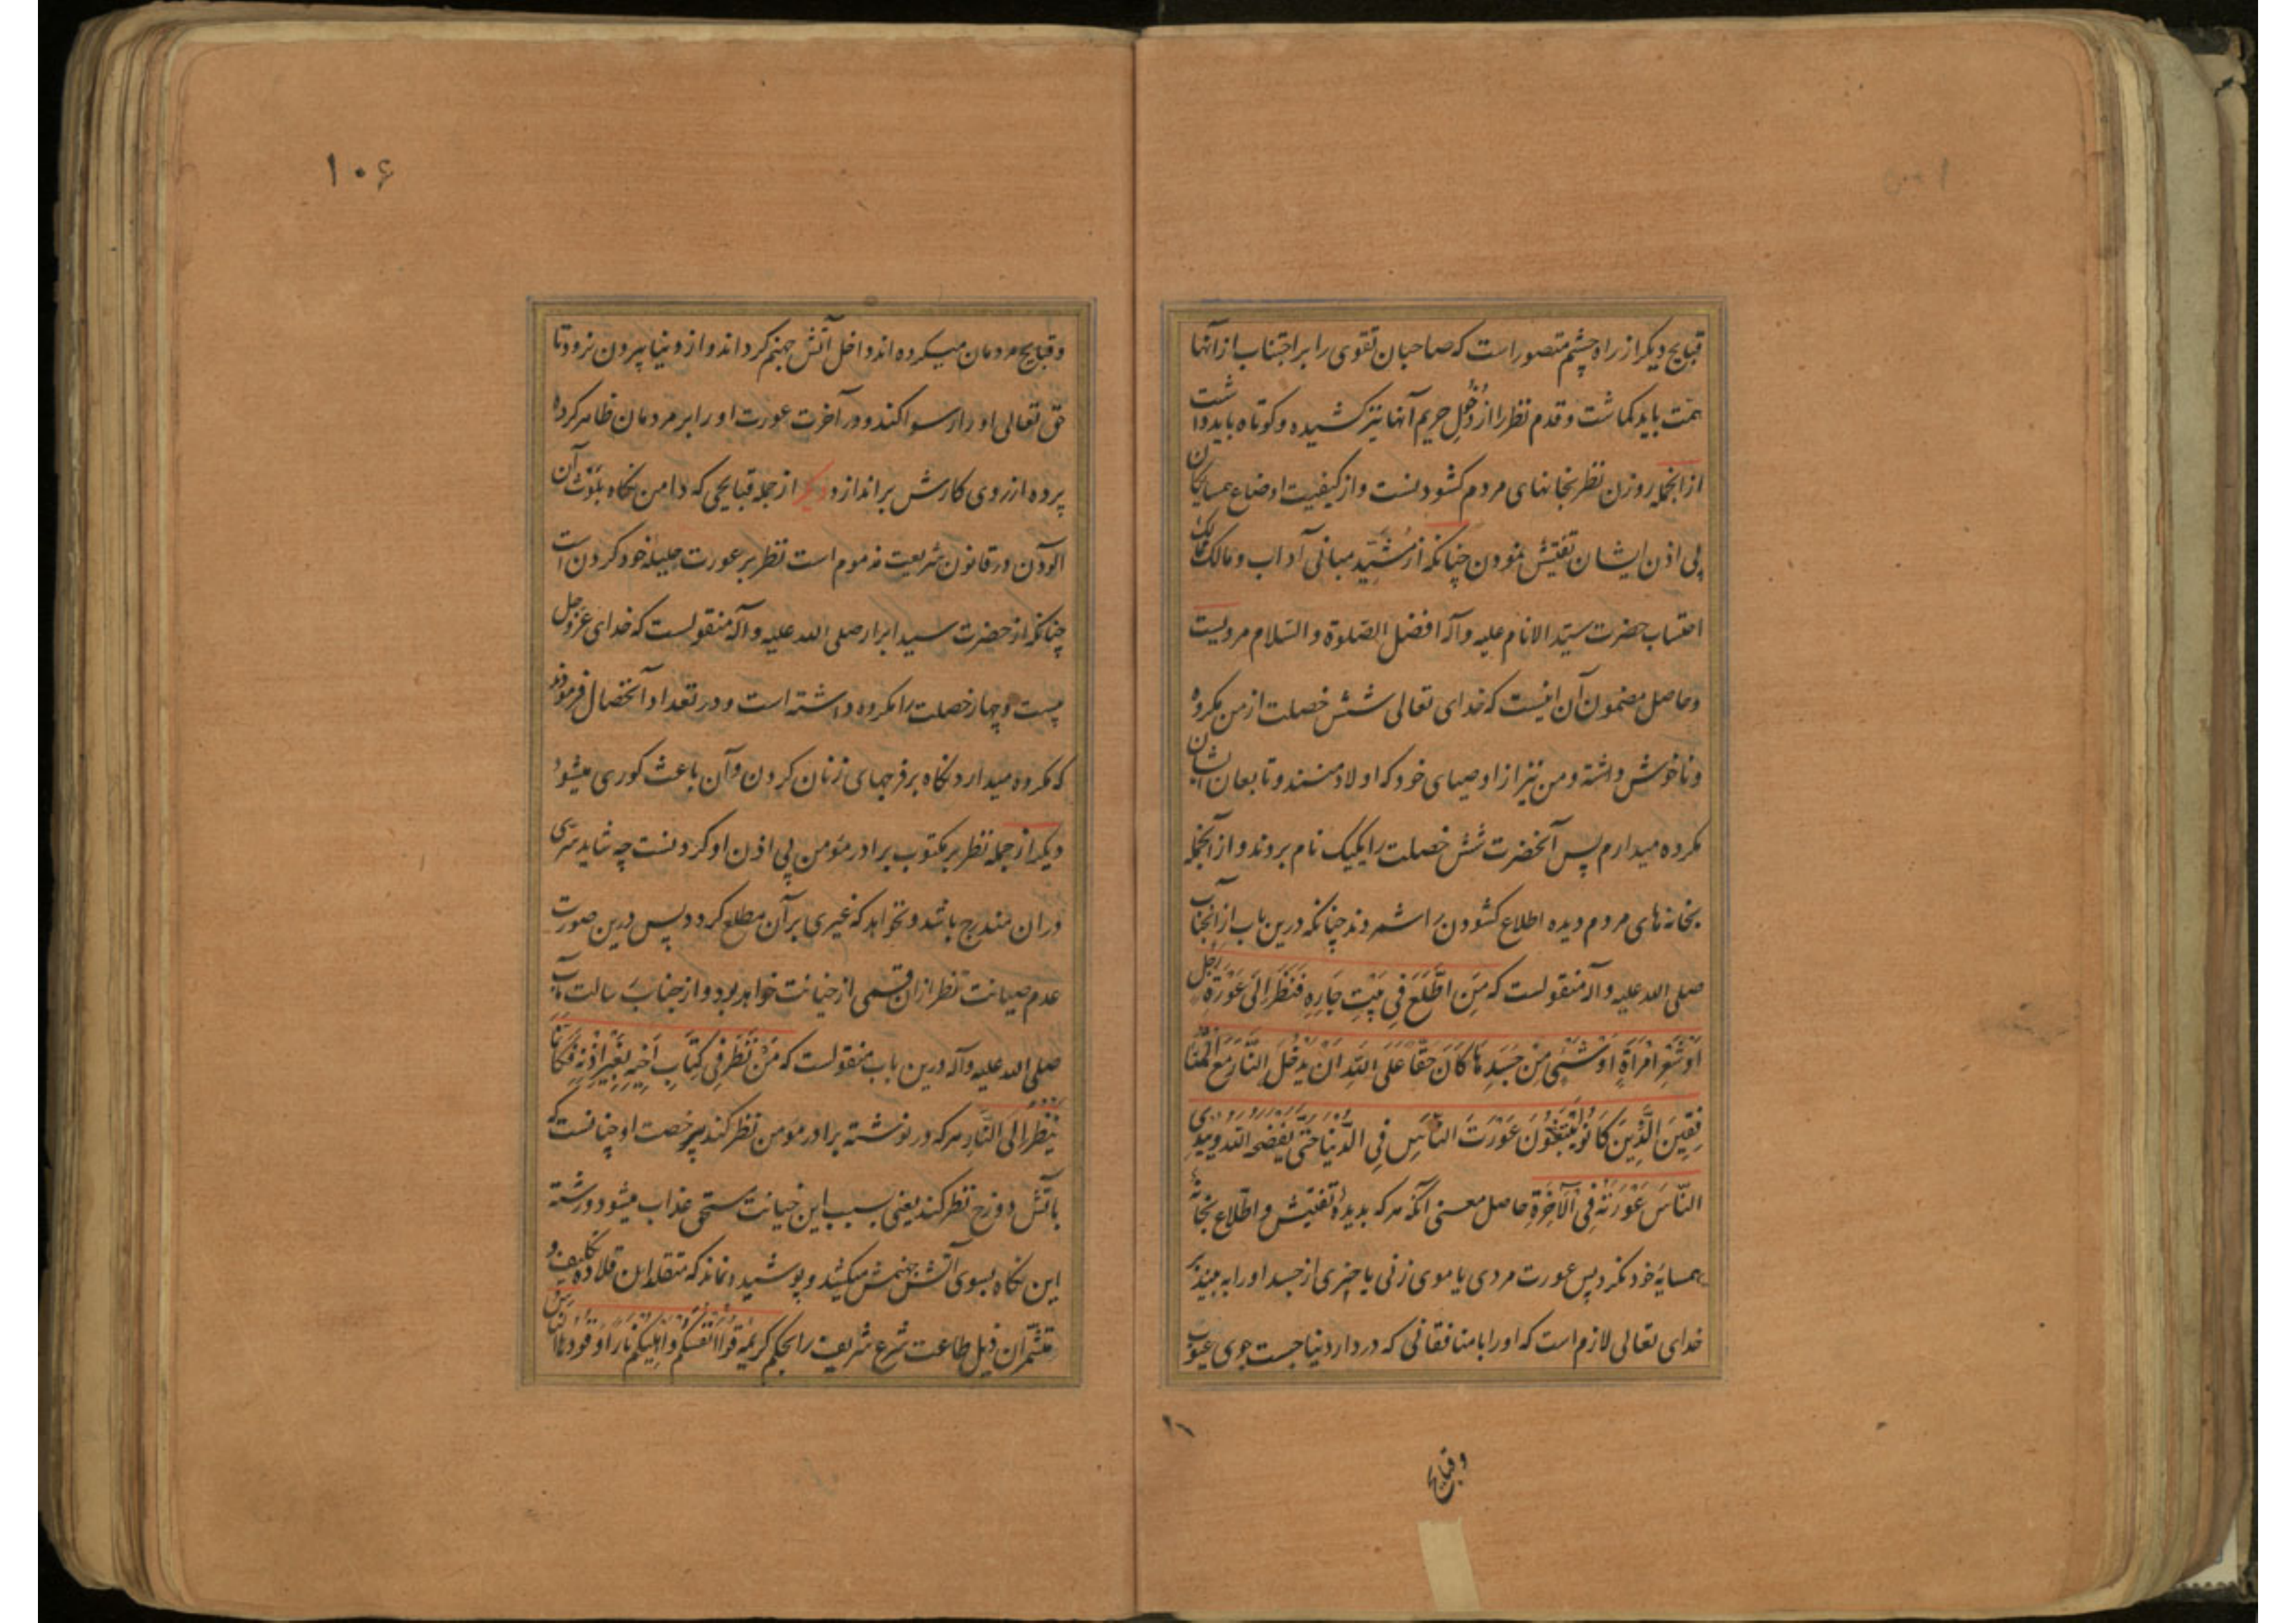 قبایح دیکر از راه چشم متصور است که صاحبان تقوی را بر اجتناب از آنها
همّت باید کماشت و قدم نظر را از دُخُلِ حریم آنها نیز کشیده و کوتاه باید داشت
از انجمله روزن نظر بخانهای مردم کشودنست و از کیفیت اوضاع همسایکان
بی اذن ایشان تفتیش نمودن چنانکه از مُشَیِّد مبانی آداب و مالک ممالک
احتساب حضرت سیّد الانام علیه و آله افضل الصّلوة و السّلام مرویست
و حاصل مضمون آن اینست که خدای تعالی شش خصلت از من مکروه
و ناخوش داشته و من نیز از اوصیای خود که اولاد منند و تابعان ایشان
مکروه میدارم پس آنحضرت شش خصلت را یکیک نام بردند و از آنجمله
بخانه های مردم دیده اطلاع کشودن را شمردند چنانکه درین باب از انجناب
صلی الله علیه و آله منقولست که مَنِ اطَّلَعَ فِی بَیْتِ جَارِهِ فَنَظَرَ اِلَی عَوْرَةِ رَجُلٍ
اَوْ شَعْرِ امْرَاَةٍ اَوْ شَیْئٍ مِنْ جَسَدِهَا کَانَ حَقّاً عَلَی اللّهِ اَنْ یَدْخُلَ النَّارَ مَعَ الْمُنَا
فِقِینَ الَّذِینَ کَانُو یَتَّبِعُونَ عَوْرَتَ النَّاسِ فِی الدُّنْیَا حَتّی یَفْضَحَهُ اللّه وَ یُبْدِیَ
النّاسَ عَوْرَتَهُ فِی الْآخِرَةِ حاصل معنی آنکه هر که بدیدهٔ تفتیش و اطّلاع بخانهٔ
همسایهٔ خود نکرد پس عورت مردی یا موی زنی یا چیزی از جسد او را به بیند بر
خدای تعالی لازم است که او را با منافقانی که در دار دنیا جست جوی عیوب
و قبایح
۱۰۶
و قبایح مردمان میکرده اند داخل آتش جهنم کرداند و از دنیا بیرون نرود تا
حق تعالی او را رسوا کند و در آخرت عورت او را بر مردمان ظاهر کرده
پرده از روی کارش براندازد دیکر از جمله قبایحی که دامن نکاه بلَوْث آن
آلودن در قانون شریعت مذموم است نظر بر عورت حلیلهٔ خود کردن است
چنانکه از حضرت سید ابرار صلی الله علیه و آله منقولست که خدای عَزّوجل
بیست و چهار خصلت را مکروه داشته است و در تعداد آنخصال فرمودند
که مکروه میدارد نکاه بر فرجهای زنان کردن و آن باعث کوری میشود
دیکر از جمله نظر بر مکتوب برادر مؤمن بی اذن او کردنست چه شاید سرّی
دران مندرج باشد و نخواهد که غیری بر آن مطلع کردد پس درین صورت
عدم صیانت نظر از ان قسمی از خیانت خواهد بود و از جناب رسالت مآب
صلی الله علیه و آله درین باب منقولست که مَنْ نَظَرَ فِی کِتَابِ اَخِیهِ بِغَیْرِ اِذْنِهِ فَکَاَنَّمَا
یَنْظُرُ اِلَی النَّارِ هر که در نوشته برادر مؤمن نظر کند بیرخصت او چنانست که
بآتش دوزخ نظر کند یعنی بسبب این خیانت مستحق عذاب میشود و رشته
این نکاه بسوی آتش جهنمش میکشد و پوشیده نماند که متقلدان قلاده تکلیف و
متشمّران ذیل طاعت شرع شریف را بحکم کریمهٔ قُوا اَنْفُسَکُمْ وَ اَهْلِیکُمْ نَاراً وَقُودُهَا النَّاسُ